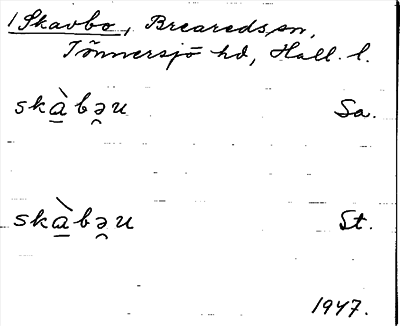 1 Skavbo, Breareds sn,
Tönnersjö hd, Hall. l.
skàbəu Sa.
skàbəu St.
1947.